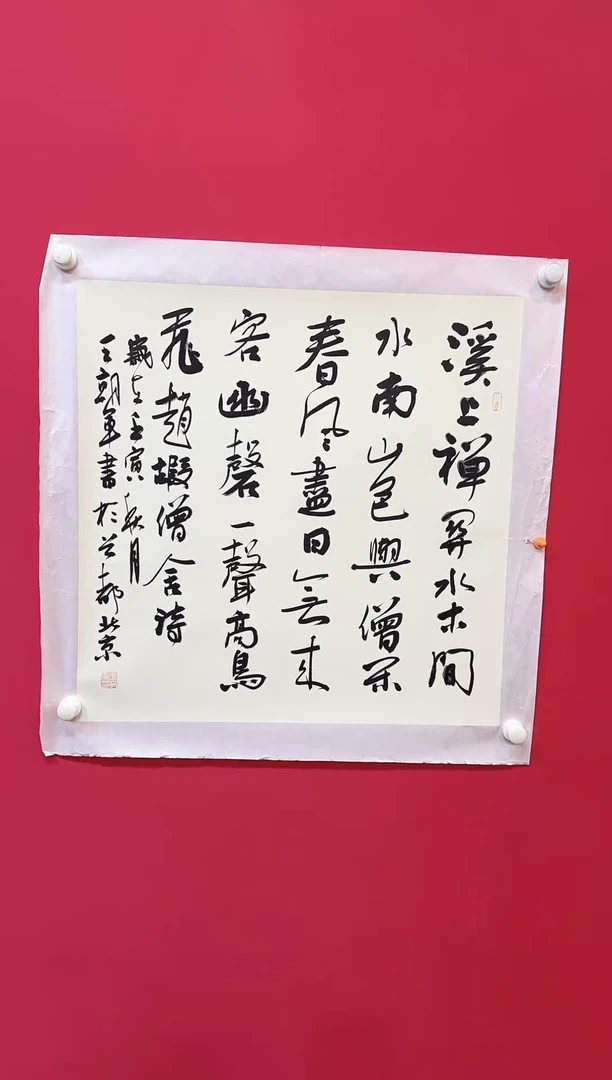 溪上禪關水木間
水南山色與僧閑
春風盡日無來
客幽磬一聲高鳥
飛趙嘏僧舍詩
歲在壬寅秋月
王朝軍書於首都北京